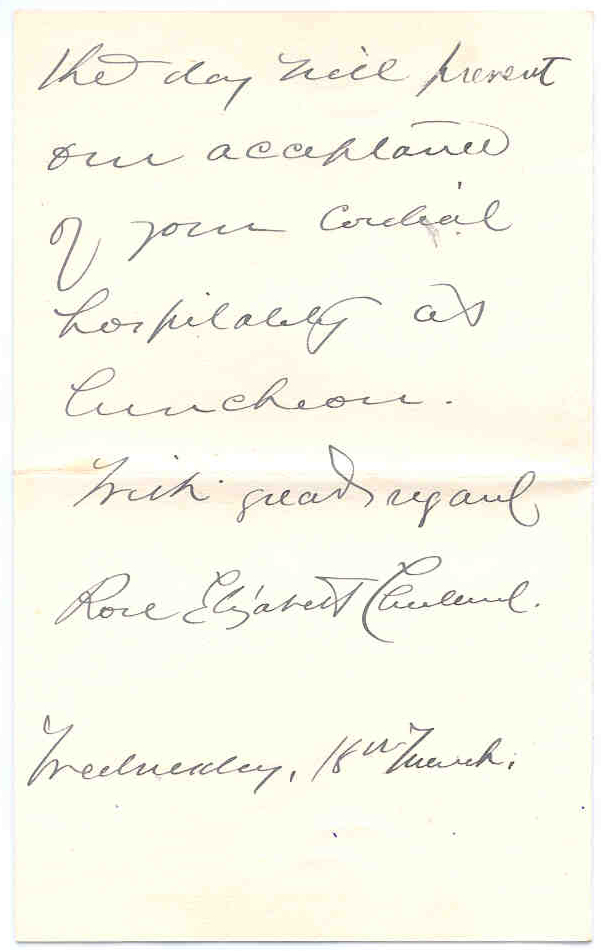 the day will prevent
our acceptance
of your cordial
hospitality at
luncheon.
With great regard
Rose Elizabeth Cleveland.
Wednesday, 18th March.